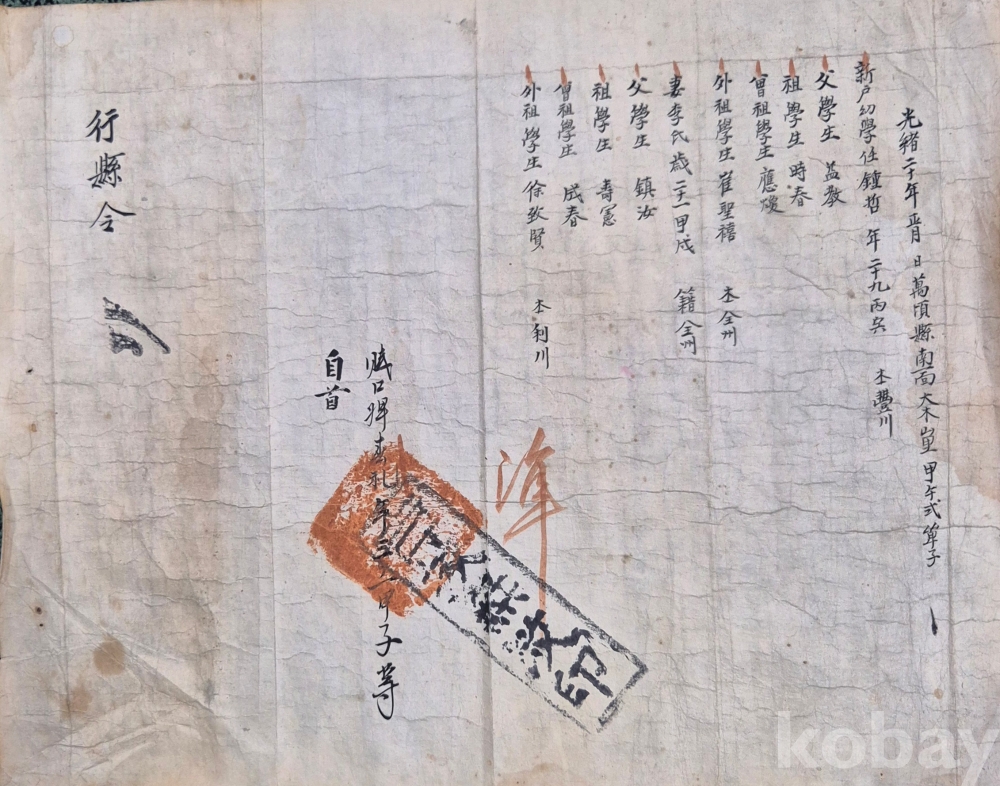 光緖二十年正月 日萬頃縣南面大木里甲午式單子
新戶幼學任鍾哲 年二十九丙寅 本豊川
父學生 益敎
祖學生 時春
曾祖學生 應
外祖學生 崔聖禧 本全州
妻李氏歲二十一甲戌 籍全州
父學生 鎭汝
祖學生 壽憲
曾祖學生 成春
外祖學生 徐致賢 本利川
準
賤口婢春礼年三一甲子等
自首
行縣令
改印
kobay